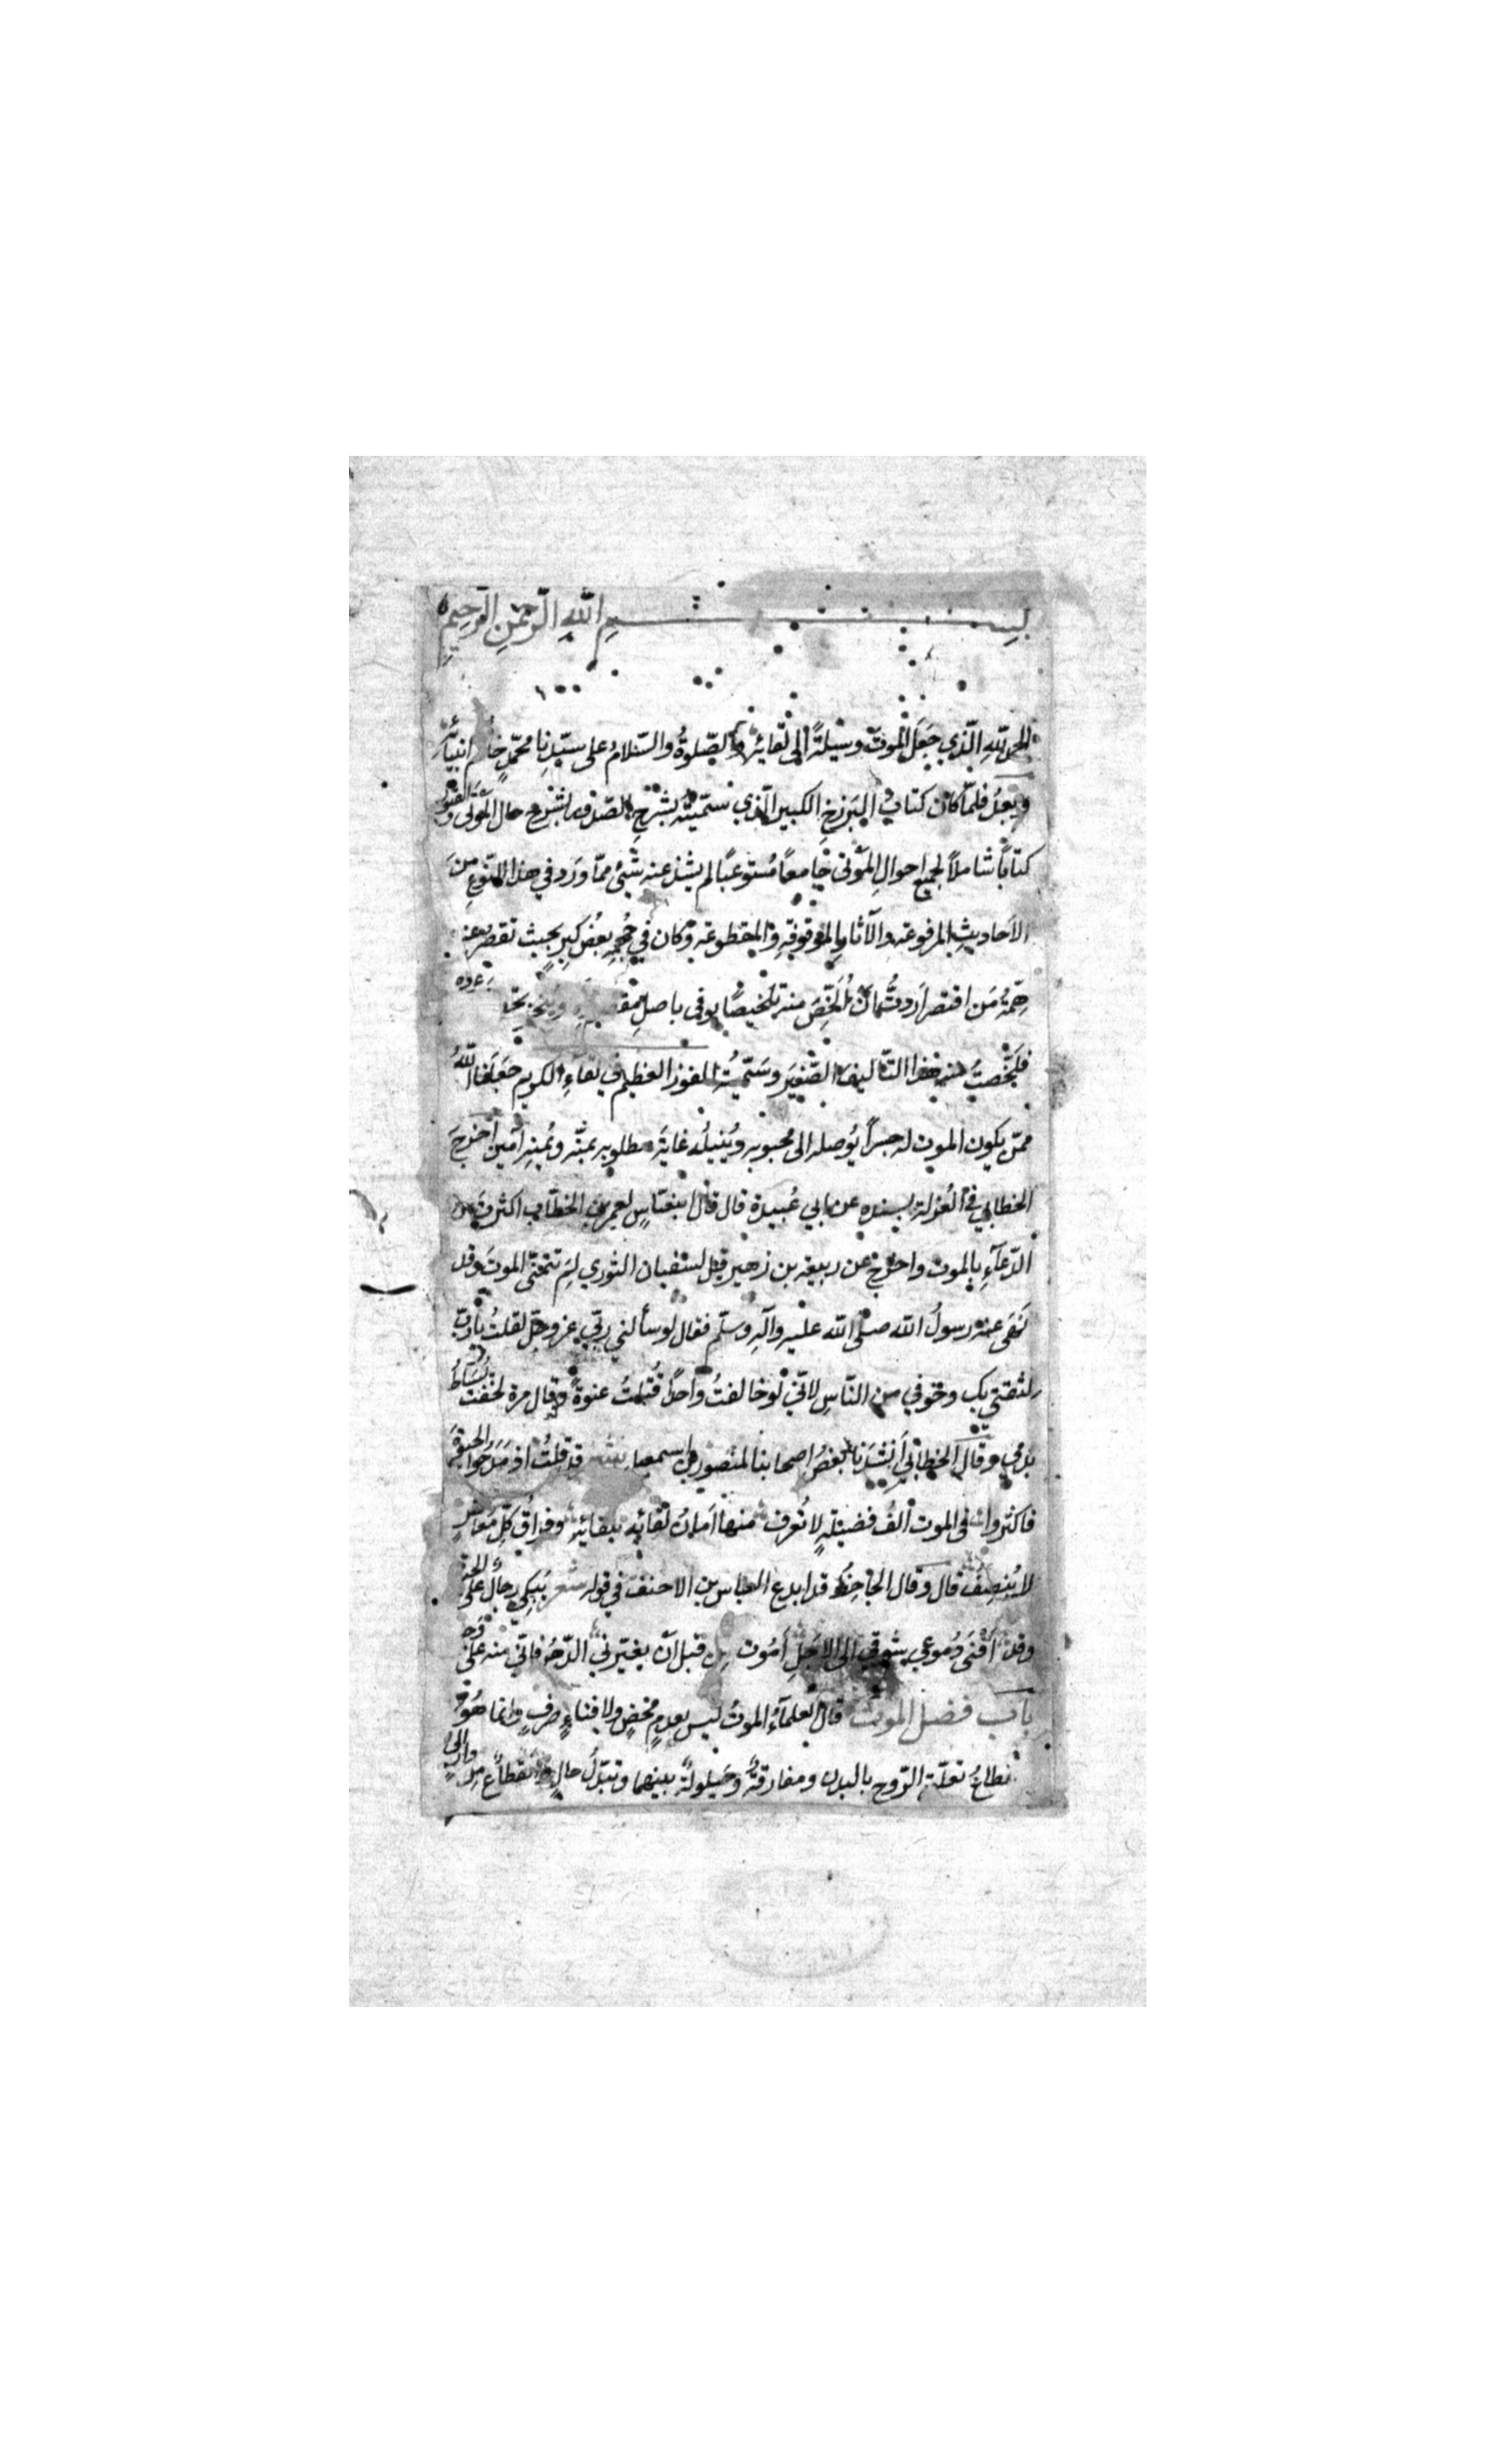 بسم الله الرحمن الرحيم
الحمد لله الذي جَعَلَ الموتَ وسيلةً الى لقائه والصّلوةُ والسّلامُ على سيّدِنا محمّدٍ خاتم انبيائه
وبعدُ فلمّا كان كتابي البَرزخِ الكبير الّذي سمّيتُه بشرح الصّدور بشرح حال الموتى والقبور
كتابًا شاملاً لجميع احوالِ الموتى جامعًا مُستوعبًا لم يشذ عنه شيئ ممّا وَرد في هذا النّوعِ منَ
الاَحاديثِ المرفوعه والآثار الموقوفةِ والمقطوعةِ وكان في حُجمِه بعضُ كبرٍ بحيث تقصر عنه
هِمّةُ مَن اقتصر اَردتُ اَن اُلَخّصَ منه تلخيصًا يوفى باصلِ
فلَخّصتُ منه هذا التّاليفَ الصّغيَر وسَمّيتُه الفوز العظيم في لقآءِ الكريم جعَلَنا اللّهُ
ممّن يكون الموت له جسراً يُوصله الى محبوبه ويُنيلُه غايَة مطلوبه بمنّه ويُمنِه آمين اَخرجَ
الخطابي في العُزلة بسنده عن ابي عُبيدة قال قال ابنعبّاسٍ لعمر بن الخطّاب اكثرتَ من
الدّعآءِ بالموت واخرج عن ربيعه بن زهير قيل لسفيان الثوري لِمَ تتمنّى الموتَ وقد
نَهَى عنه رسولُ الله صلّى الله عليه وآلِه وسلّم فقال لو سألني ربّي عز وجلّ لقلتُ يا ربّ
لثقتي بك وخوفي من النّاسِ لانّي لو خالفتُ واحداً قُتِلتُ عنوةً وقال مرة لخفت ان يُشَاطُ
بدمي وقال الخطابي اَنشَدَنا بعضُ اصحابنا لمنصور بن اسمعيل شعر قد قلتُ اذ مَدحوا الحيوةَ
فاكثروا في الموت اَلفُ فضيلةٍ لا تُعرف منها اَمانُ لقائِه بلقائِه وفراقُ كلّ مُعاشرٍ
لا يُنصِفُ قال وقال الجاحِظ قد ابدع العباس بن الاحنف في قوله شعر يَبكى رجالٌ على الحيوة
وقد اَفنَى دُموعي شوقي الى الاَجَلِ اَمُوت من قبل اَن يغيّرني الدّهر فانّي منه على وَجَل
باب فضل الموت قال لعلمآءُ الموتُ ليس بعدمٍ محضٍ ولا فناءٍ صرفٍ وانما هُو
نطاعُ تعلّق الرّوح بالبدن ومفارقةٌ وحَيلولةٌ بينهما وتبدّلُ حالٍ وانقطاعٌ من دارٍ الى